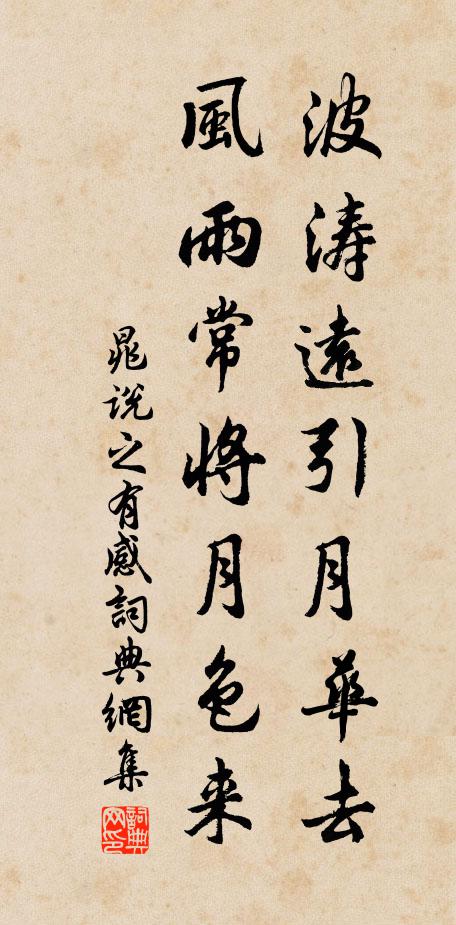 波濤遠引月華去
風雨常將月色来
晁說之有感詞典網集
詞典网印